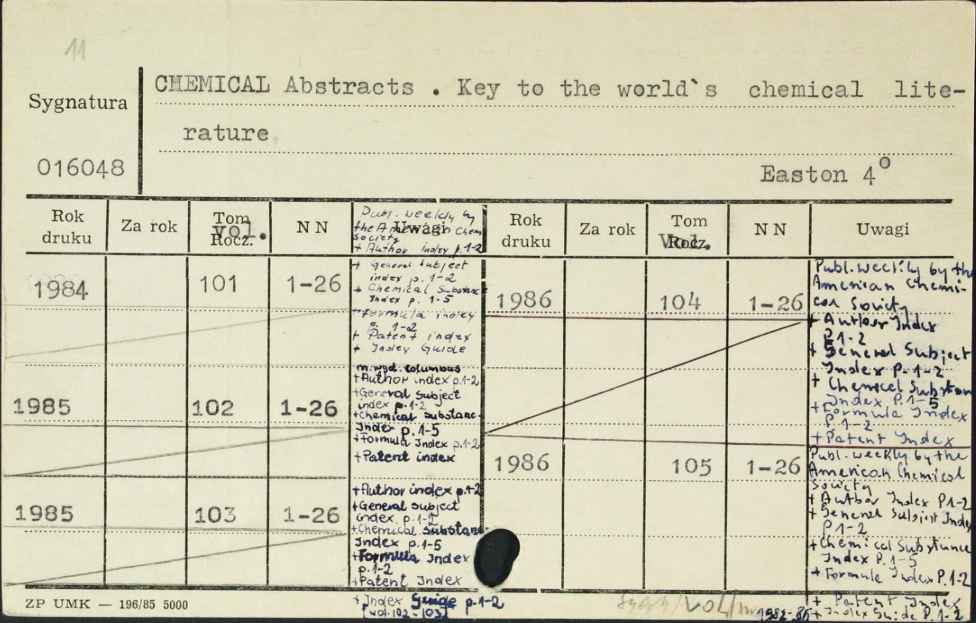 11
CHEMICAL Abstracts . Key to the world`s chemical lite-
Sygnatura
rature
016048
Easton 4°
Rok druku Za rok Tom vol. Rocz. NN Uwagi
Publ. weekly by
the American Chem
Society
+ Author index p.1-2
1984 101 1-26
+ general subject
index p. 1-2
+ Chemical Substance
Index p. 1-5
+ Formula index
p. 1-2
+ Patent index
+ Index Guide
1985 102 1-26
m.wyd. columbus
+Author index p.1-2
+General Subject
index p.1-2
+Chemical Substance
Index p.1-5
+Formula Index p.1-2
+Patent index
1985 103 1-26
+Author index p.1-2
+General Subject
index p.1-2
+Chemical Substance
Index p.1-5
+Formula Index
p.1-2
+Patent Index
+Index Guide p.1-2
[vol.102-103]
Rok druku Za rok Tom Vol. Rocz. NN Uwagi
1986 104 1-26
Publ. weekly by the
American Chemi-
cal Society
+ Author Index
P.1-2
+ General Subject
Index P.1-2
+ Chemical Substan
Index P.1-5
+Formula Index
P.1-2
+Patent Index
1986 105 1-26
Publ. weekly by the
American Chemical
Society
+ Author Index P.1-2
+ General Subject Index
P.1-2
+Chemical Substance
Index P.1-5
+Formula Index P.1-2
+ Patent Index
+ Index Guide P.1-2
ZP UMK — 196/85 5000